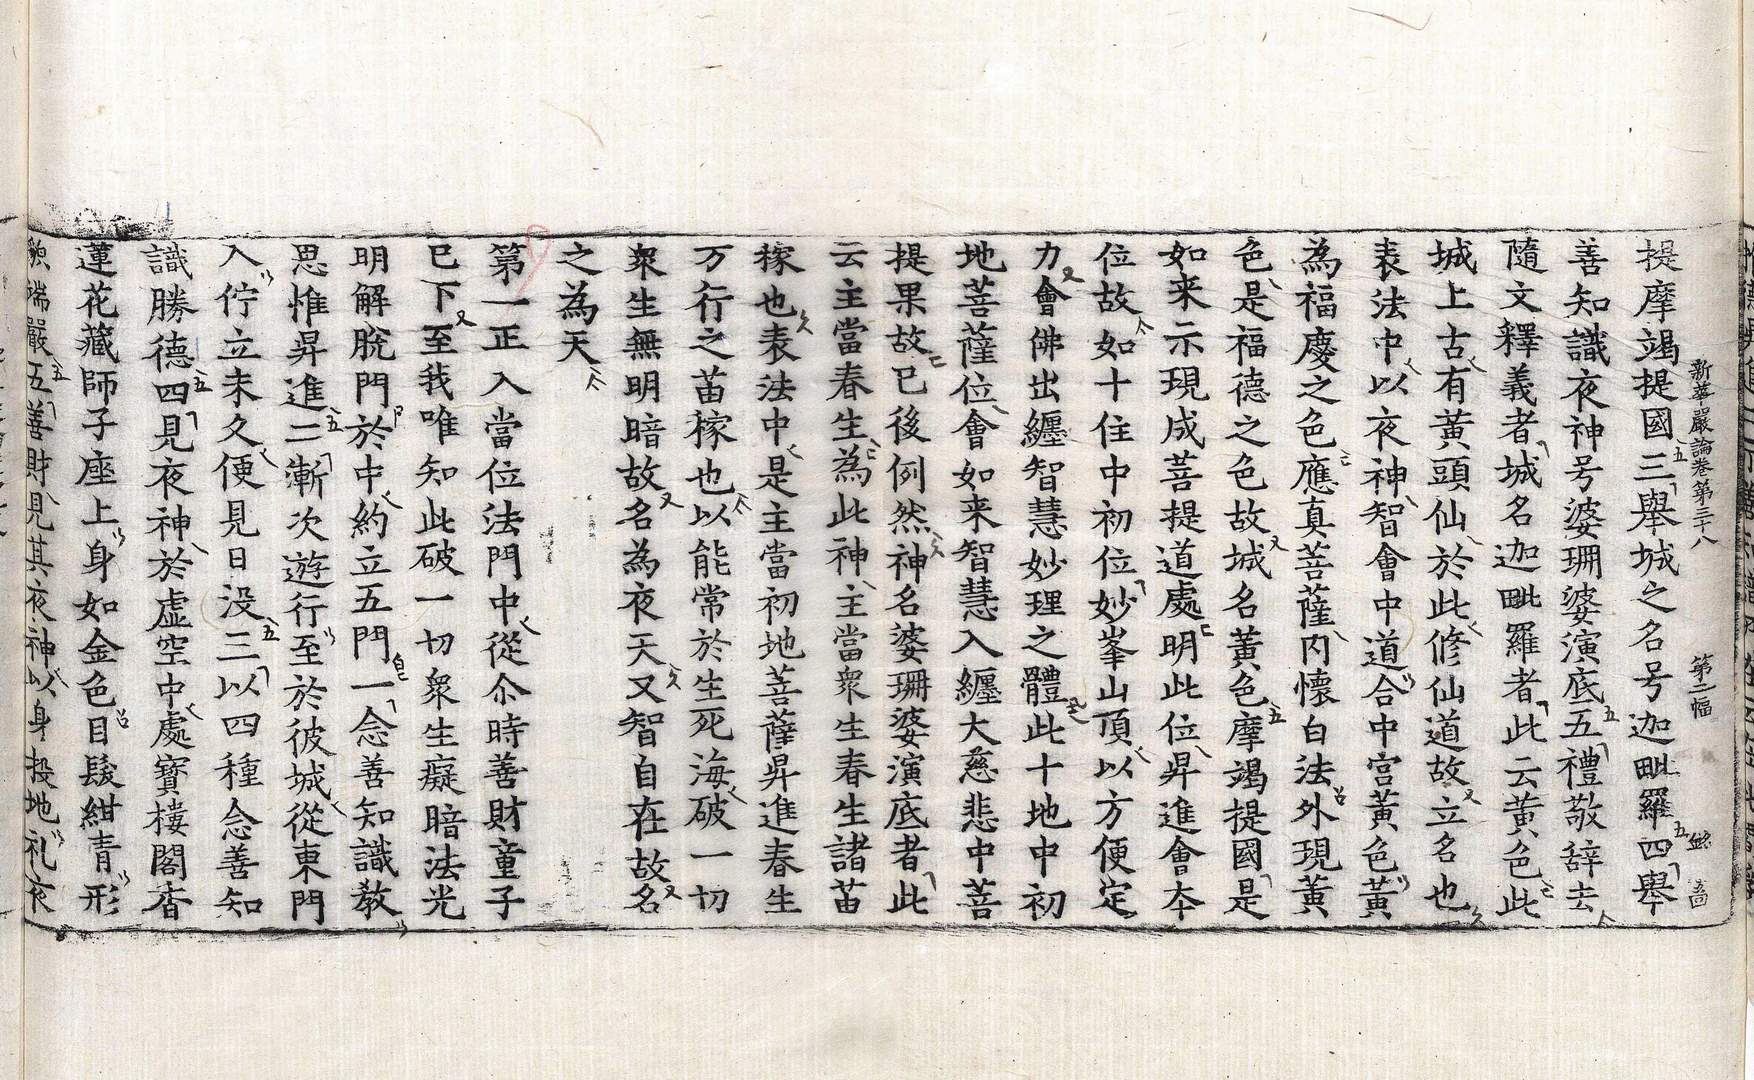 新華嚴論卷第三十八 第二幅 益 㐚
提摩竭提國三舉城之名号迦毗羅四舉
善知識夜神号婆珊婆演底五禮敬辞去
隨文釋義者城名迦毗羅者此云黃色此
城上古有黃頭仙於此修仙道故立名也
表法中以夜神智會中道合中宮黃色黃
為福慶之色應真菩薩内懷白法外現黃
色是福德之色故城名黃色摩竭提國是
如来示現成菩提道處明此位昇進會夲
位故如十住中初位妙峯山頂以方便定
力會佛出纏智慧妙理之體此十地中初
地菩薩位會如来智慧入纏大慈悲中菩
提果故已後例然神名婆珊婆演底者此
云主當春生為此神主當衆生春生諸苗
稼也表法中是主當初地菩薩昇進春生
万行之苗稼也以能常於生死海破一切
衆生無明暗故名為夜天又智自在故名
之為天
第一正入當位法門中從尒時善財童子
已下至我唯知此破一切衆生癡暗法光
明解脫門於中約立五門一念善知識教
思惟昇進二漸次遊行至於彼城從東門
入佇立未久便見日没三以四種念善知
識勝德四見夜神於虛空中處寳樓閣香
蓮花藏師子座上身如金色目髮紺青形
皃端嚴五善財見其夜神以身投地礼夜